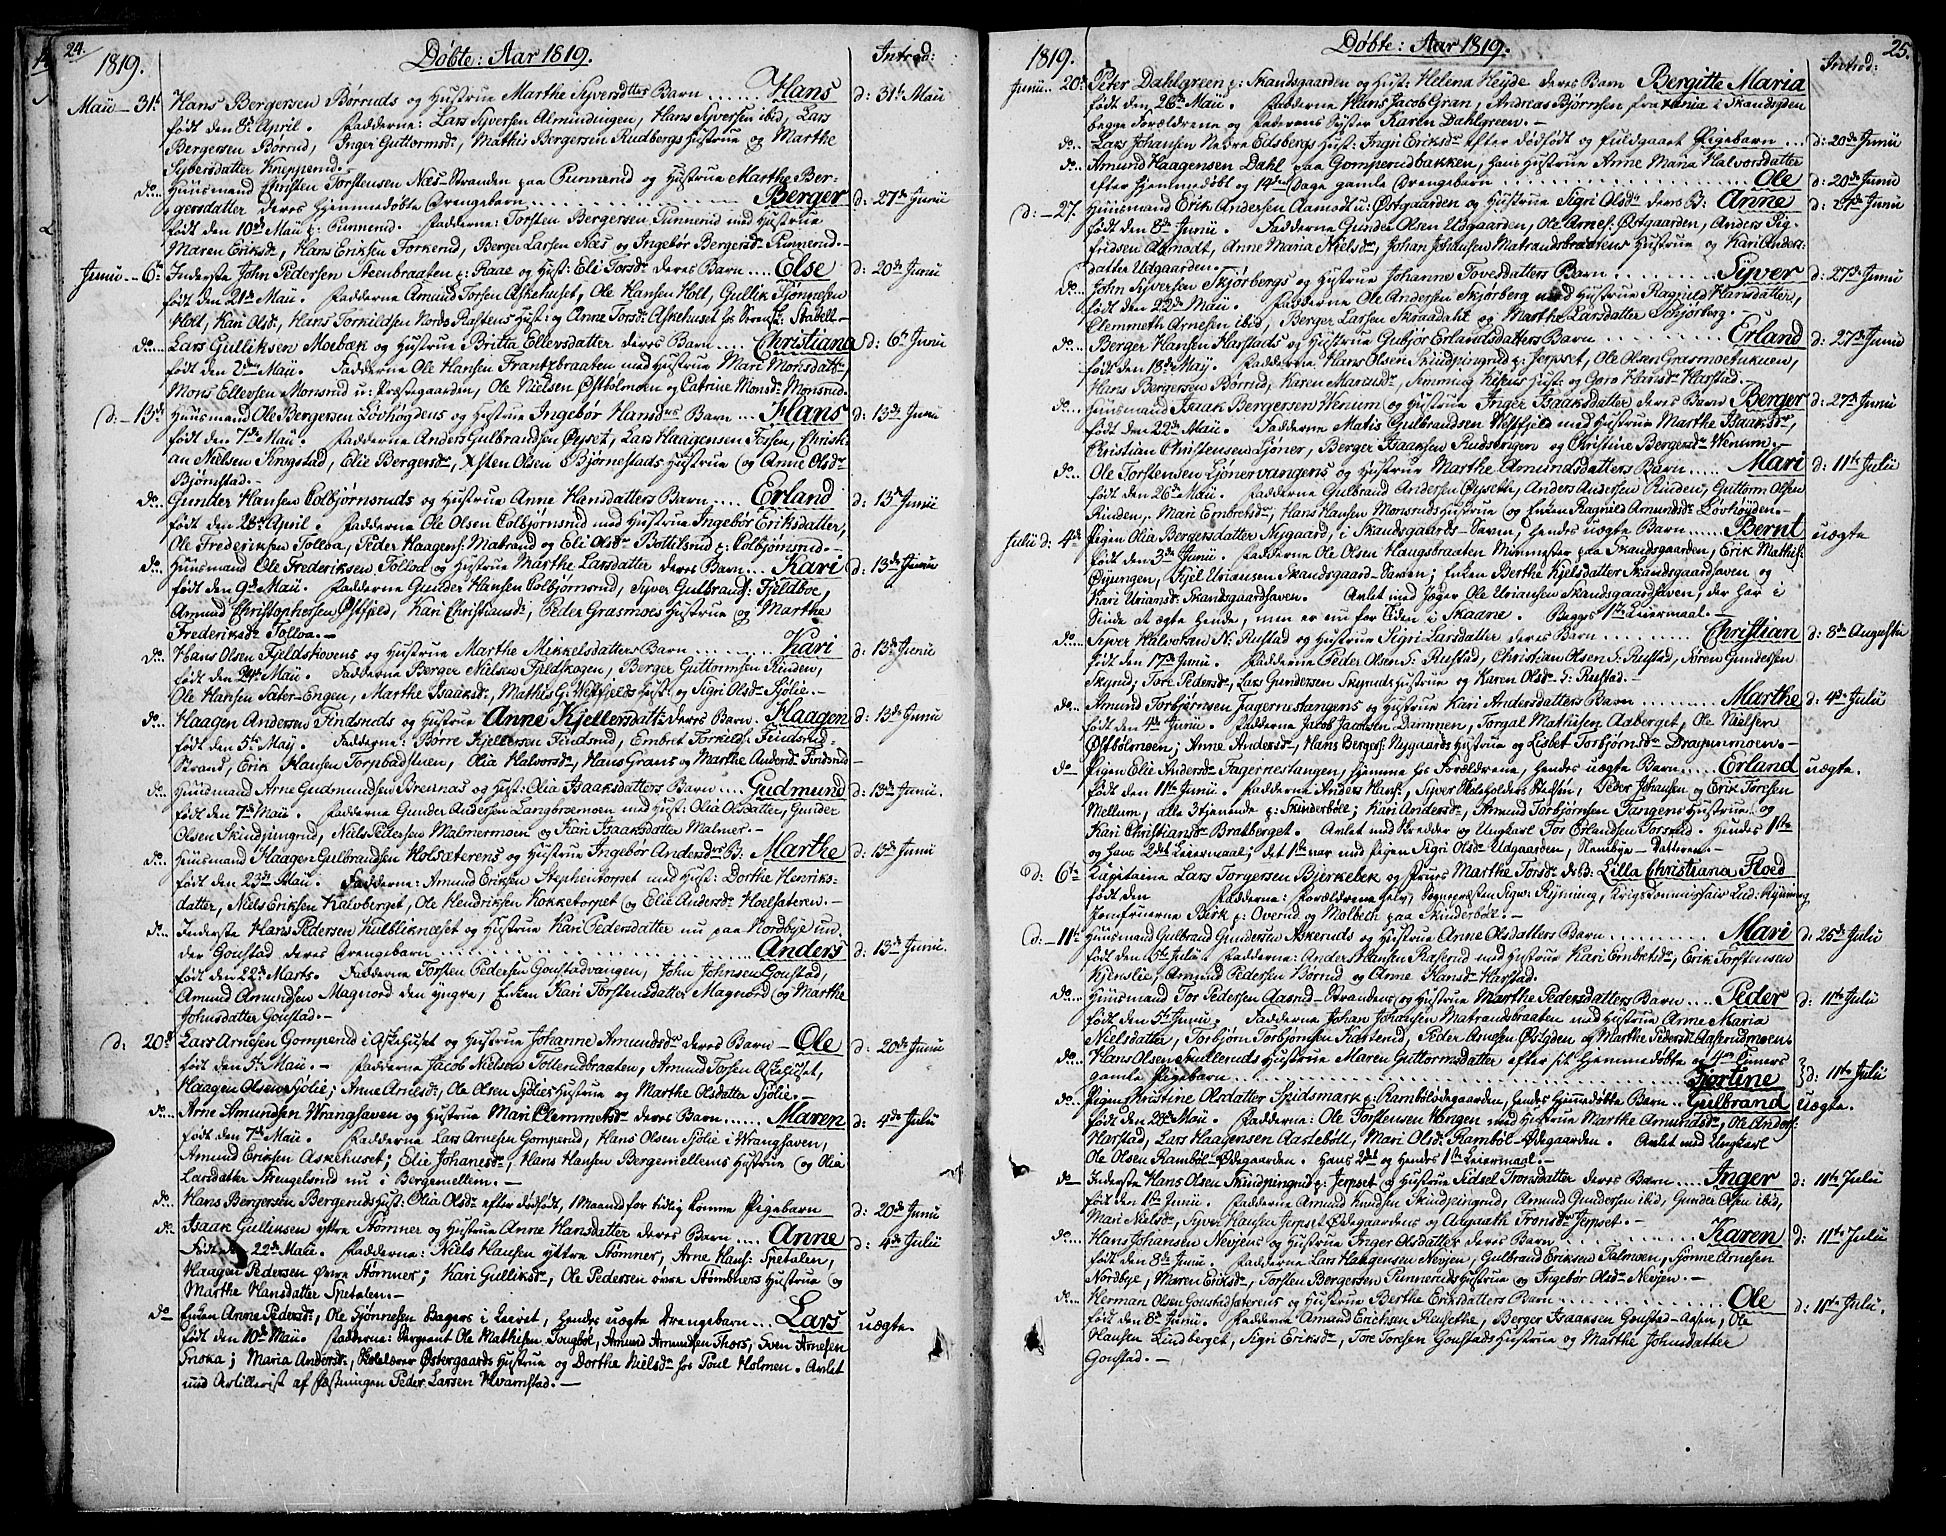 24.
1819.
Døbte: Aar 1819.
Introd:
Maii — 31te Hans Bergersen Børruds og Hustrue Marthe Syversdtrs Barn ..... Hans d: 31te Maii
født den 8de April. Fadderne: Lars Syversen Almindingen, Hans Syversen ibid, Lars
Bergersen Børrud, Inger Guttormsdr, Mathis Bergersen Rudbergs Hustrue og Marthe
Syversdatter Kneppend.
do.. Huusmand Christen Torstensen Næs-Stranden paa Punnerud og Hustrue Marthe Ber-
gersdatter deres hjemmedøbte Drengebarn ..... Berger d: 27de Junii
født den 10de Maii p: Punnerud. Fadderne: Torsten Bergersen Punnerud med Hustrue
Maren Eriksdr, Hans Eriksen Forkerud, Berger Larsen Næs og Ingebør Bergersdr Punnerud.
Junii — 6te Inderste John Pedersen Steenbraaten p: Raae og Hust: Eli Torsdr deres Barn .... Else d: 20de Junii
født den 21de Maii. Fadderne Amund Torsen Askehuset, Ole Hansen Holt, Gullik Siønnesen
Holt, Kari Olsdr, Hans Torkildsen Nordre Rastens Hust: og Anne Torsdr Askehuset hos Stabell —
do.... Lars Gulliksen Moebek og Hustrue Britta Ellersdatter deres Barn .... Christiana d: 6te Junii
født den 2den Maii. Fadderne Ole Hansen Frantzbraaten med Hustrue Mari Monsdatter
Mons Ellevsen Monsrud u: Præstegaarden, Ole Nielsen Østbølmoen og Catrine Monsdr Monsrud.
d: — 13de Huusmand Ole Bergersen Lövhøgdens og Hustrue Ingebør Hansdrs Barn ... Hans d: 13de Junii
født den 7de Maii. Fadderne Anders Gulbrandsen Øyset, Lars Haagensen Fossen, Christi-
an Nielsen Krogstad, Elie Bergersdr, Østen Olsen Bjørnestads Hustrue og Anne Olsdr
Bjørnstad.
do... Gunder Hansen Colbjørnsruds og Hustrue Anne Hansdatters Barn .... Erland d: 13de Junii
født den 28de April. Fadderne Ole Olsen Colbjørnsrud med Hustrue Ingebør Eriksdatter,
Ole Frederiksen Tolloa, Peder Haagens: Matrand og Eli Olsdr Bottilsrud p: Colbjørnsrud.
do.. Huusmand Ole Frederiksen Tolloa og Hustrue Marthe Larsdatter deres Barn ... Kari d: 13de Junii
født den 9de Maii. Fadderne Gunder Hansen Colbjørnsrud, Syver Gulbrands: Fjeldboe,
Amund Christophersen Østfield, Kari Christiansdr, Peder Grasmoes Hustrue og Marthe
Frederiksdr Tolloa.
do.. Hans Olsen Fjeldskovens og Hustrue Marthe Mikkelsdatters Barn ........ Kari d: 13de Junii
født den 24de Maii. Fadderne Berger Nielsen Fjeldskogen, Berger Guttormsen Rinden,
Ole Hansen Sæter-Engen, Marthe Isaaksdr, Mathis G: Westfjelds Hust: og Sigri Olsdr Sjølie.
do.. Haagen Andersen Findsruds og Hustrue Anne Kjellersdatter deres Barn. Haagen d: 13de Junii
født den 5te May. Fadderne: Børre Kjellersen Findsrud, Embret Torkilds: Findsrud-
Strand, Erik Hansen Torpbadstuen, Olia Halvorsdr, Hans Grans og Marthe Andersdr Findsrud
do... Huusmand Arne Gudmundsen Brennas og Hust: Olia Isaaksdatters Barn .... Gudmund d: 13de Junii.
født den 7de Maii. Fadderne Gunder Andersen Langbraemoen med Hust: Olia Olsdatter, Gunder
Olsen Skindpungrud, Niels Pedersen Malmermoen og Kari Isaaksdatter Malmer.
do... Huusmand Haagen Gulbrandsen Holsæterens og Hustrue Ingebør Andersdrs B: Marthe d: 13de Junii
født den 23de Maii. Fadderne: Amund Eriksen Stephentorpet med Hust: Dorthe Henriks-
datter, Niels Eriksen Kalvberget, Ole Hendriksen Kokketorpet og Elie Andersdr Hoelsæteren.
do... Inderste Hans Pedersen Kulbliknæset og Hustrue Kari Pedersdatter nu paa Nordbye un-
der Goustad deres Drengebarn ..... Anders d: 13de Junii.
født den 22de Marts. Fadderne Torsten Pedersen Goustadvangen, John Johnsen Goustad,
Amund Amundsen Magnord den yngre, Enken Kari Torstensdatter Magnord og Marthe
Johnsdatter Goustad.
d: 20de Lars Arnesen Gomperud i Askehuset og Hustrue Johanne Amundsdr deres Barn — Ole d: 20de Junii
født den 5te Maii. Fadderne Jacob Nielsen Tollerudbraaten, Amund Torsen Askehuset,
Haagen Olsen Sjølie; Anne Arnesdr, Ole Olsen Sjølies Hustrue og Marthe Olsdatter Sjølie.
do... Arne Amundsen Wranghaven og Hustrue Mari Clemmetsdr deres Barn ...... Maren d: 4de Julii
født den 7de Maii. Fadderne Lars Arnesen Gomperud, Hans Olsen Sjølie i Wranghaven,
Amund Eriksen Askehuset; Elie Johannesdr, Hans Hansen Bergemellems Hustrue og Olia
Larsdatter Strengelsrud nu i Bergemellem.
do. Hans Bergersen Bergeruds Hust: Olia Olsdr efter dødfødt, 1 Maaned for tidlig komme Pigebarn d: 20de Junii
do. Isaak Gullinsen yttre Stømner og Hustrue Anne Hansdatters deres Barn ..... Anne d: 4de Julii
født den 22de Maii. Fadderne: Niels Hansen yttre Stømner, Arne Hans: Spetalen,
Haagen Pedersen Øvre Størmer; Kari Gulliksdr, Ole Pedersen Øvre Stømners Hustrue og
Marthe Hansdatter Spetalen.
do — Enken Anne Pedersdr, Ole Sjønnesen Bagers i Leiret, hendes uægte Drengebarn ... Lars uægte.
født den 10de Maii. Fadderne: Sergeant Ole Mathisen Tougbøl, Amund Amundsen Thors, Sven Arnesen
Snoka; Maria Andersdr, Skolelærer Østergaards Hustrue og Dorthe Nielsdr hos Poul Holmen. Avlet
med Artillerist af Fæstningen Peder Larsen Kvamstad.
25.
1819.
Døbte: Aar 1819.
Introd:
Junii 20de Peter Dahlgreen p: Skandsgaarden og Hust: Helena Heyde deres Barn Bergitte Maria
født den 26de Maii. Fadderne Hans Jacob Gran, Andreas Bjørnsen fra i Skandsgden
begge Forældrene og Faderens Syster Karen Dahlgreen.
do... Lars Johansen Nedre Eidsbergs Hust: Ingri Eriksdr efter dødfødt og fuldgaaet Pigebarn ... d: 20de Junii
do. Amund Haagensen Dahl paa Gomperudbakken, hans Hustrue Anne Maria Halvorsdatter
efter hjemmedøbt og 14de Dage gamle Drengebarn ..... Ole d: 20de Junii
d: — 27. Huusmand Erik Andersen Aamodt u: Østgaarden og Hustrue Sigri Olsdr deres B: Anne d: 27de Junii
født den 8de Junii. Fadderne Gunder Olsen Udgaarden, Ole Arnes: Østgaarden, Anders Sig-
fridsen Aamodt, Anne Maria Nielsdr, Johan Johansen Matrandsbraatens Hustrue og Kari Anders-
datter Udgaarden.
do.... John Syversen Skjørbergs og Hustrue Johanne Tovesdatters Barn ....... Syver d: 27de Junii
født den 22de Maii. Fadderne Ole Andersen Skjørberg med Hustrue Ragnild Hansdatter,
Clemmeth Arnesen ibid, Berger Larsen Skraadahl og Marthe Larsdatter Schjørberg.
do... Berger Hansen Harstads og Hustrue Gubjør Erlandsdatters Barn ........ Erland d: 27de Junii
født den 18de Maij. Fadderne Hans Olsen Skindpingrud p: Jerpset, Ole Olsen Grasmoetukuen,
Hans Bergersen Børrud, Karen Mariusdr, Hust: og Goro Hansdr Harstad.
do. Huusmand Isaak Bergersen Wenum og Hustrue Inger Isaaksdatter deres Barn Berger d: 27de Junii
født den 22de Maii. Fadderne Matis Gulbrandsen Westfjeld med Hustrue Marthe Isaaksdr,
Christian Christensen Sjøner, Berger Isaaksen Rudsbrigen og Christine Bergersdr Wenum.
do... Ole Torstensen Sjønervangens og Hustrue Marthe Amundsdatters Barn ..... Mari d: 11te Julii
født den 26de Maii. Fadderne Gulbrand Andersen Øyseth, Anders Andersen Rinden, Guttorm Olsen
Rinden, Mari Embretsdr, Hans Hansen Monsruds Hustrue og Enken Ragnild Amundsdr Lövhöyden.
Julii d: 4de Pigen Olia Bergersdatter Nygaard, i Skandsgaards-Haven, hendes uægte Barn ...... Bernt uægte
født den 3de Junii. Fadderne Ole Olsen Haugsbraaten Mönmester paa Skandsgaarden, Erik Mathis:
Øyungen, Kjel Uriansen Skandsgaard-Haven; Enken Berthe Kjelsdatter Skandsgaardhaven og
Kari Uriansdr Skandsgaardhaven. Avlet med Jæger Ole Uriansen Skandsgaardhaven, der har i
Sinde at ægte hende, men er nu for Tiden i Skaane. Begges 1te Leiermaal.
do... Syver Halvorsen N: Rustad og Hustrue Sigri Larsdatter deres Barn ......... Christian d: 8de Augusti
født den 17de Junii. Fadderne Peder Olsen S: Rustad, Christian Olsen S: Rustad, Søren Gundersen
Skyrud, Tore Pedersdr, Lars Gundersen Skyruds Hustrue og Karen Olsdr S: Rustad.
do... Amund Torbjørnsen Fagernestangens og Hustrue Kari Andersdatters Barn ....... Marthe d: 4de Julii
født den 4de Junii. Fadderne Jacob Jacobsen Dammen, Torgal Mathisen Aaberget, Ole Nielsen
Østbølmoen; Anne Andersdr, Hans Bergers: Nygaards Hustrue og Lisbet Torbjørnsdr Dragunmoen.
do — Pigen Elie Andersdr Fagernestangen, hjemme hos Forældrene, hendes uægte Barn ..... Erland uægte.
født den 11te Junii. Fadderne Anders Hans:, Syver Skoleholders Stefsen, Peder Johansen og Erik Toresen
Mellum, alle 3 tjenende p: Skinderbøl; Kari Andersdr, Amund Torbjørnsen Tangens Hustrue og
Kari Christiansdr Bratberget. Avlet med Skredder og Ungkarl Tor Erlandsen Torsrud. Hendes 1te
og hans 2det Leiermaal; det 1te var med Pigen Sigri Olsdr Udgaarden, Nambye-Datteren.
d: 6te Kapitaine Lars Torgersen Bjerkebek og Frues Marthe Torsdr deres B: Lilla Christiana Floed
født den      Fadderne: Forældrene selv, Sognepræsten Sigv: Rynning, Krigs Commissair Lud: Rynning
Jomfruerne Birk p: Overud og Molbech paa Skinderbøl.
d: — 11te Huusmand Gulbrand Gundersen Askeruds og Hustrue Anne Olsdatters Barn ......... Mari d: 25de Julii
født den 5te Julii. Fadderne: Anders Hansen Raserud med Hustrue Kari Embretsdr, Erik Torstensen
Kjenslie, Amund Pedersen Børrud og Anne Hansdr Harstad.
do... Huusmand Tor Pedersen Aasrud-Strandens og Hustrue Marthe Pedersdatters Barn .... Peder d: 11te Julii
født den 5te Junii. Fadderne Johan Johansen Matrandsbraaten med Hustrue Anne Maria
Nielsdatter, Torbjørn Torbjørnsen Karterud, Peder Arnesen Østgden og Marthe Pedersdr Aaserudmoen.
do. Hans Olsen Skulleruds Hustrue Maren Guttormsdatter efter sit hjemmedøbte og 4re Timers
gamle Pigebarn ..... Fjortine d: 11te Julii
do... Pigen Kristine Olsdatter Spidsmark p: Rambölödegaarden, hendes hjemmedøbte Barn ... Gulbrand uægte.
født den 28de Maii. Fadderne: Ole Torstensen Hangen med Hustrue Marthe Amundsdr, Ole Anders:
Harstad, Lars Haagensen Aasteböll, Mari Olsdr Ramböl-Ödegaarden. Avlet med Ungkarl
Ole Olsen Ramböl-Ödegaarden. Hans 2det og hendes 1te Leiermaal.
do — Inderste Hans Olsen Skindpungrud p: Jerpset og Hustrue Sidsel Tronsdatter deres Barn .... Inger d: 11te Julii
født den 1te Junii. Fadderne Amund Knudsen Skindpungrud, Amund Gundersen ibid, Gunder Olsen ibid,
Mari Nielsdr, Syver Hansen Jerpset Ødegaardens og Aagaath Tronsdr Jerpset.
do.... Hans Johansen Nevjens og Hustrue Inger Olsdatter deres Barn ......... Karen d: 11te Julii
født den 8de Junii. Fadderne Lars Haagensen Nevjen, Gulbrand Eriksen Talmoen, Sjønne Arnesen
Nordbye, Maren Eriksdr, Torsten Bergersen Punneruds Hustrue og Ingebør Olsdr Nevjen.
do... Herman Olsen Goustadsæterens og Hustrue Berthe Eriksdatters Barn ......... Ole d: 11te Julii.
født den 8de Junii. Fadderne Amund Erichsen Reusethe, Berger Isaaksen Goustad-Aasen, Ole
Hansen Lindberget, Sigri Eriksdr, Tore Toresen Goustads Hustrue og Marthe Johnsdatter
Goustad.